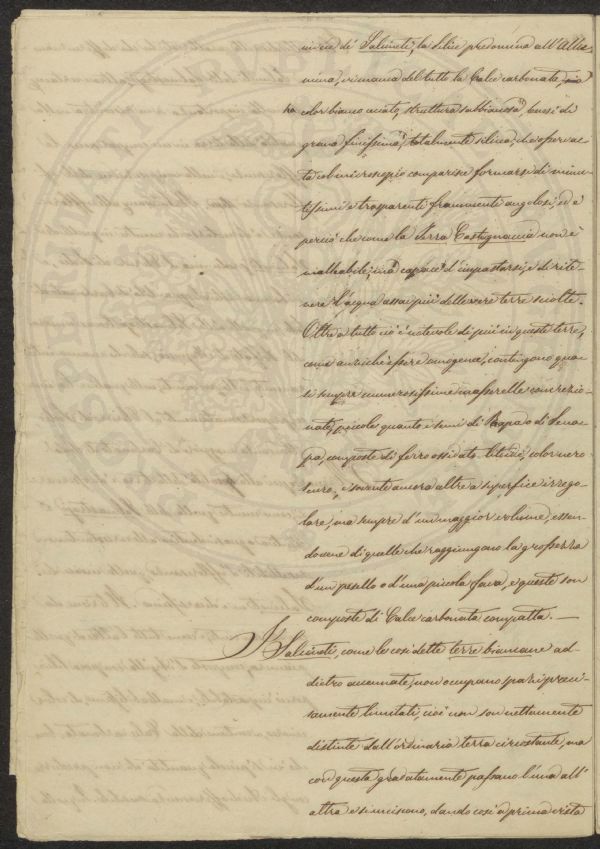 in cie di Salicisti, la Selice predomina all'Allu-
mina, rimanda del tutto la Calce carbonata,
ha color bianco cinato, struttura sabbionosa, bensì di
grana finissima, totalmente silicea, che osserva-
ta col microscopio comparisce formarsi di minu-
tissimi e trasparenti frammenti angolosi, ed è
perciò che come la Terra Castagnaccia non è
malleabile, nè capace d'impastarsi, e di rite-
nere l'acqua assai più delle vere terre sciolte.
Oltre a tutto ciò è notevole di più in queste terre,
come anzichè essere omogenee, contengono qua-
si sempre numerosissime masserelle concrezio-
nate, piccole quanto i semi di Rapa o di Sena-
pa, composte di ferro ossidato litoide, color nero
scuro, e sovente ancora altre a superfice irrego-
lare, ma sempre d'un maggior volume, essen-
dovene di quelle che raggiungano la grossezza
d'un pesello o d'una piccola fava, e queste son
composte di Calce carbonata compatta. —
I Salicisti, come le così dette terre biancane ad-
dietro accennate, non occupano spazi preci-
samente limitati, cioè non son nettamente
distinte dall'ordinaria terra circostante, ma
con questa gradatamente passano l'una all'
altra e si uniscono, dando così a prima vista